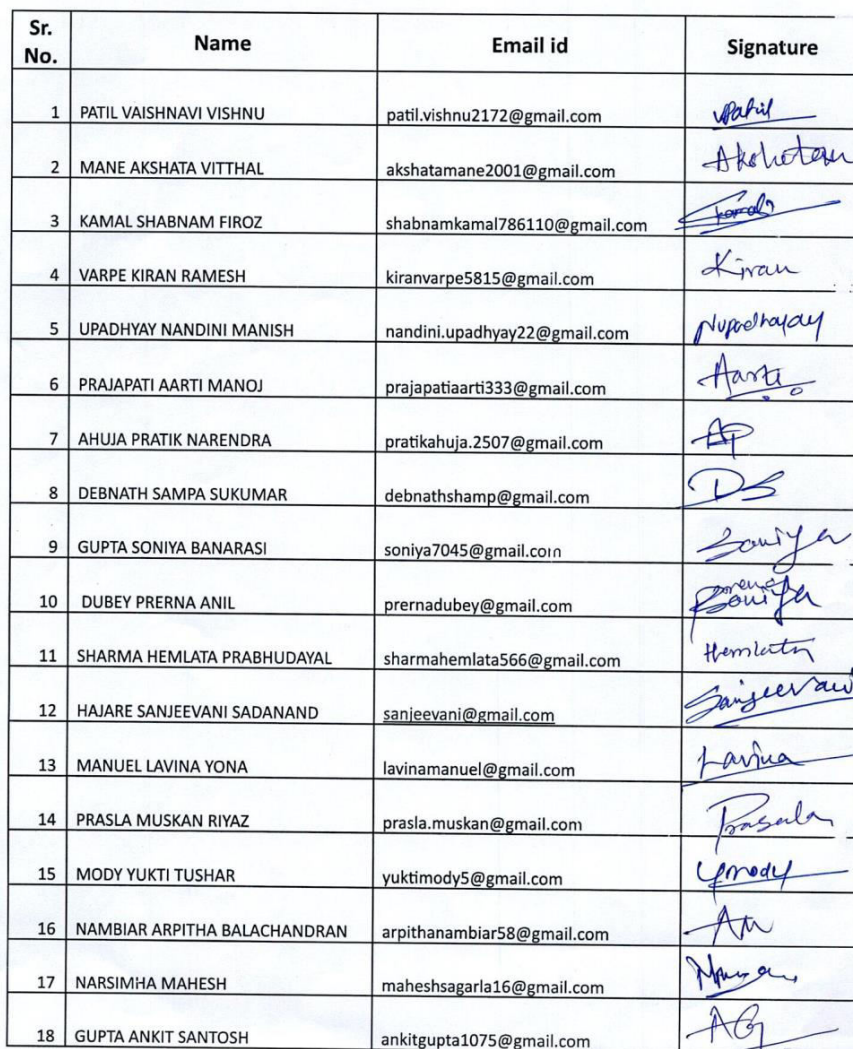 Sr. No. Name Email id Signature
1 PATIL VAISHNAVI VISHNU patil.vishnu2172@gmail.com VPatil
2 MANE AKSHATA VITTHAL akshatamane2001@gmail.com
3 KAMAL SHABNAM FIROZ shabnamkamal786110@gmail.com
4 VARPE KIRAN RAMESH kiranvarpe5815@gmail.com Kiran
5 UPADHYAY NANDINI MANISH nandini.upadhyay22@gmail.com Nupadhayay
6 PRAJAPATI AARTI MANOJ prajapatiaarti333@gmail.com Aarti
7 AHUJA PRATIK NARENDRA pratikahuja.2507@gmail.com AP
8 DEBNATH SAMPA SUKUMAR debnathshamp@gmail.com DS
9 GUPTA SONIYA BANARASI soniya7045@gmail.com Soniya
10 DUBEY PRERNA ANIL prernadubey@gmail.com
11 SHARMA HEMLATA PRABHUDAYAL sharmahemlata566@gmail.com Hemlata
12 HAJARE SANJEEVANI SADANAND sanjeevani@gmail.com Sanjeevani
13 MANUEL LAVINA YONA lavinamanuel@gmail.com Lavina
14 PRASLA MUSKAN RIYAZ prasla.muskan@gmail.com Prasala
15 MODY YUKTI TUSHAR yuktimody5@gmail.com Ymody
16 NAMBIAR ARPITHA BALACHANDRAN arpithanambiar58@gmail.com AN
17 NARSIMHA MAHESH maheshsagarla16@gmail.com
18 GUPTA ANKIT SANTOSH ankitgupta1075@gmail.com AG